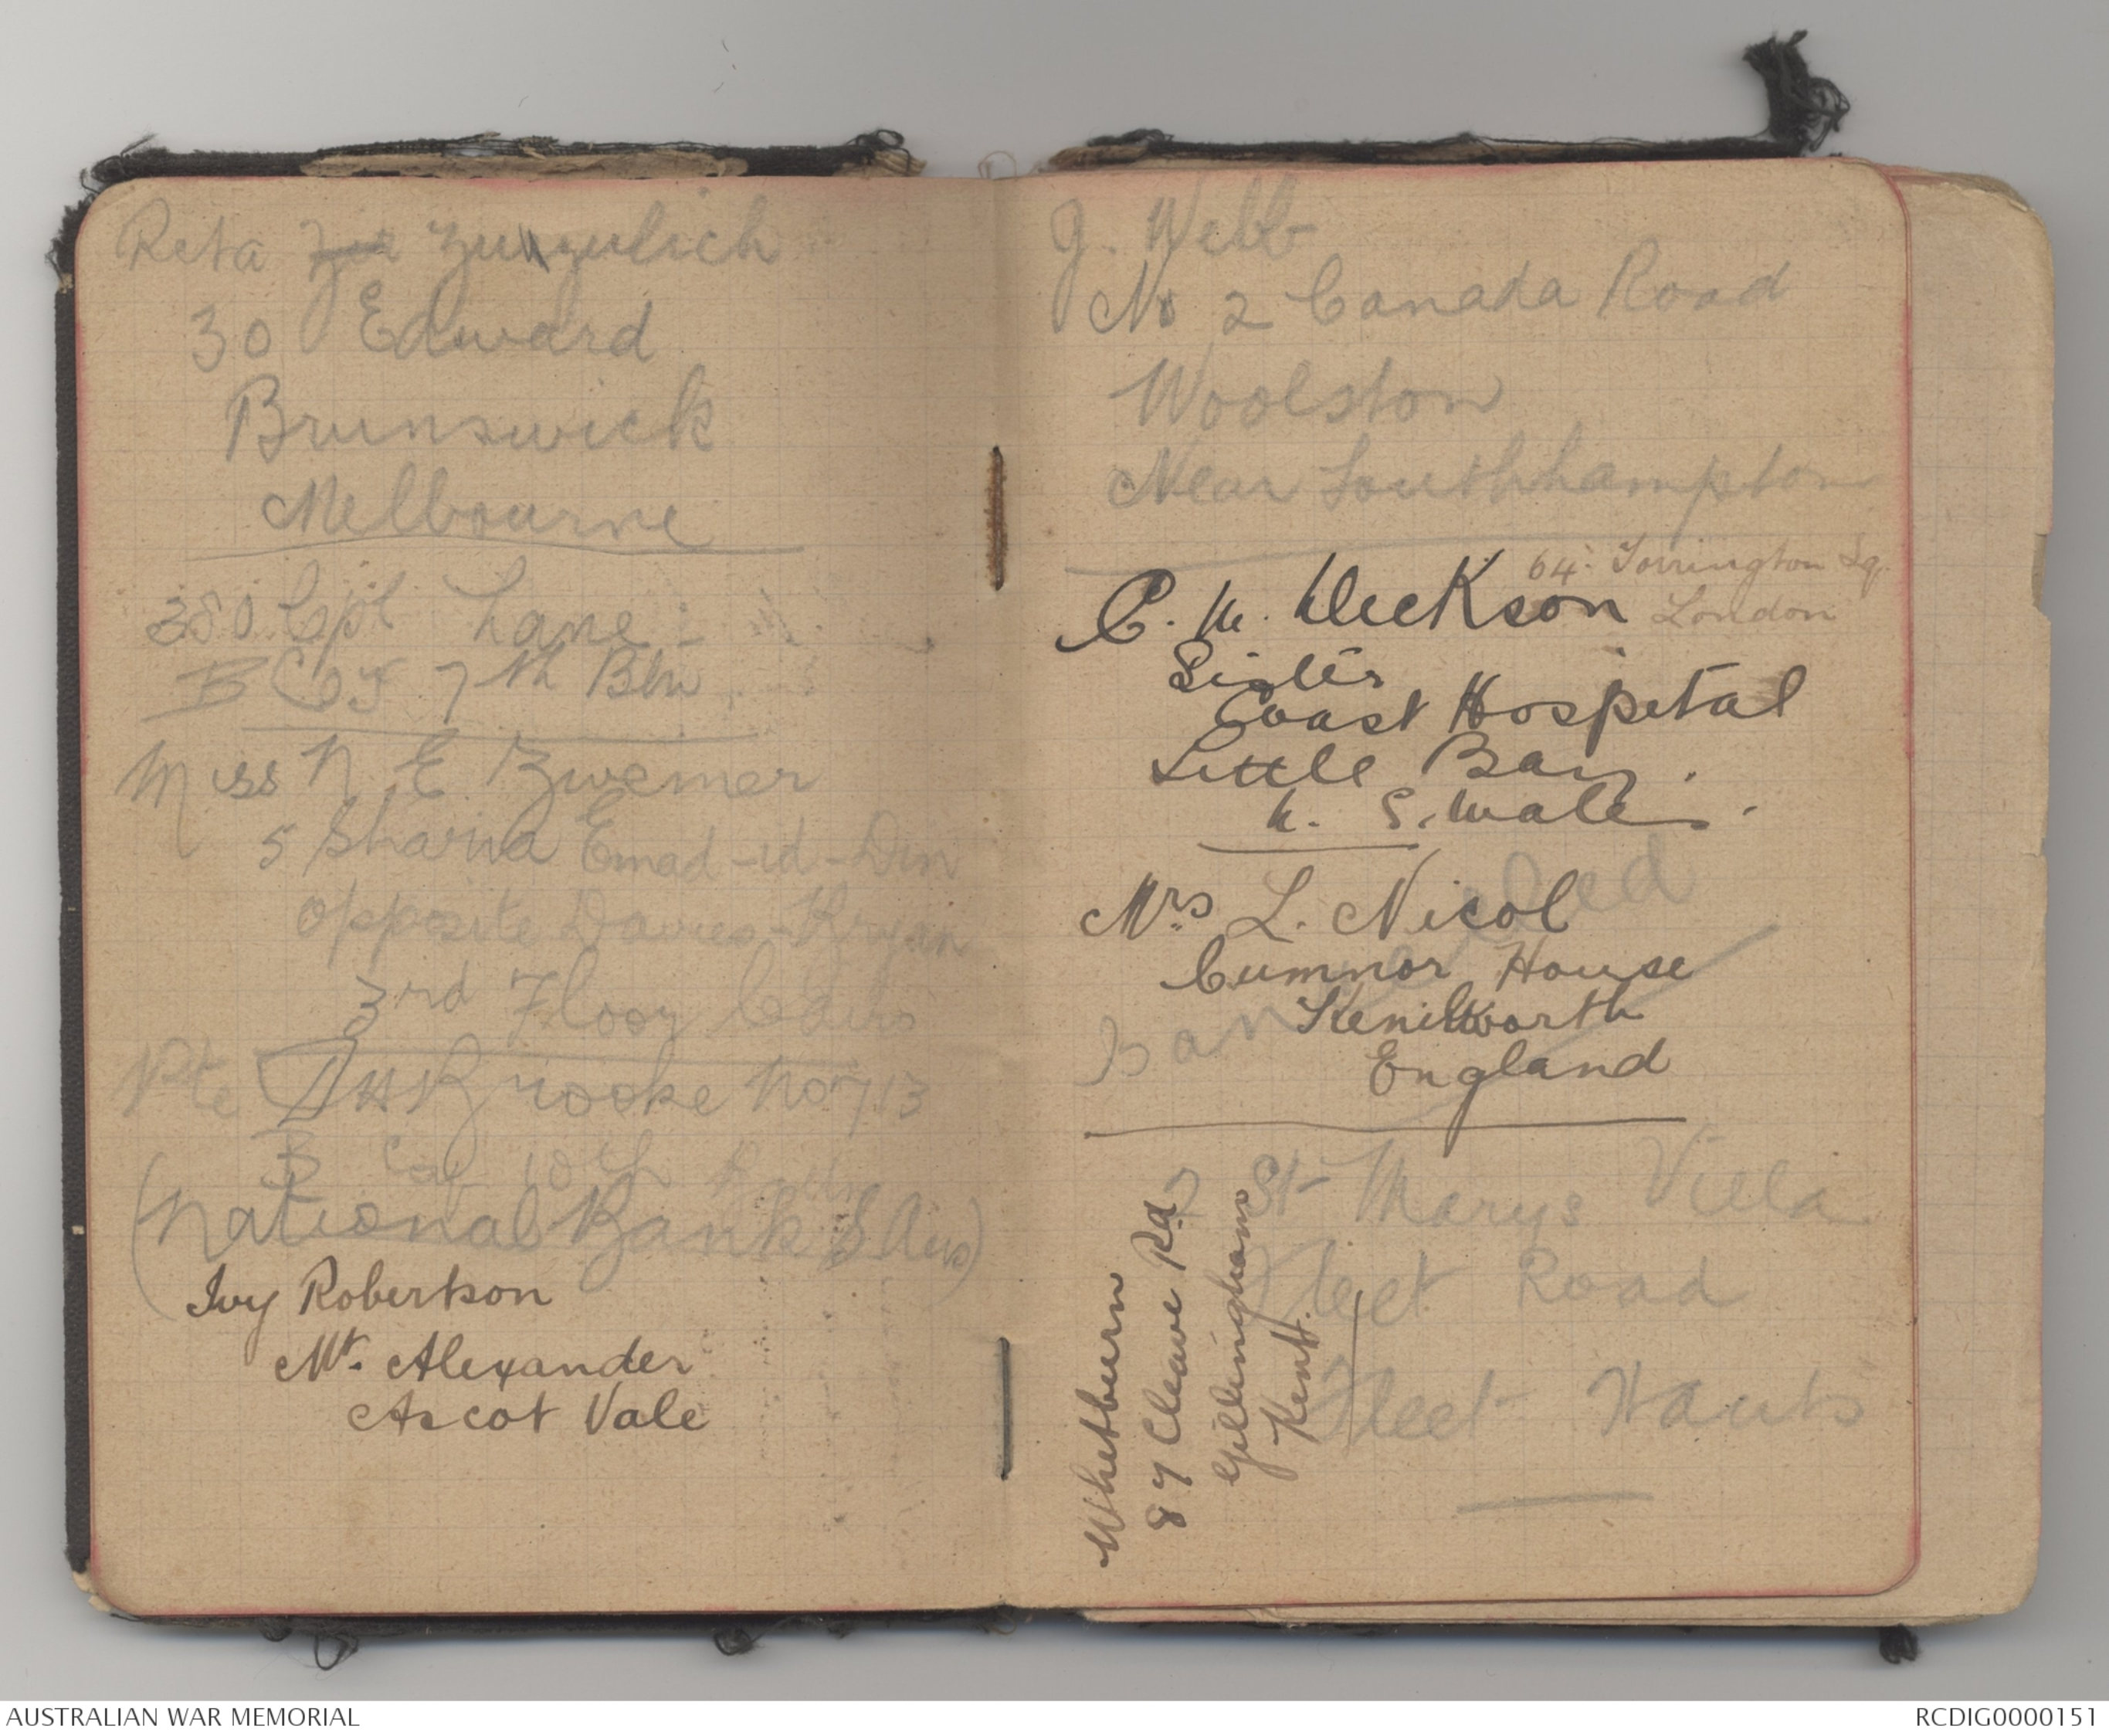 Reta Zu Zunzulich
30 Edward
Brunswick
Melbourne
380 Cpl Lane
B Coy 7th Btn
Miss N E Zwemer
5 Sharia Emad-id-Din
Opposite Davies-Bryan
3rd Floor Cairo
Pte D H Brooke No 713
B Coy 10th
(National Bank S Aus)
Ivy Robertson
Mt. Alexander
Ascot Vale
J. Webb
No 2 Canada Road
Woolston
Near Southhampton
64. Torrington Sq.
London
C. M. Dickson
Sister
Coast Hospital
Little Bay.
N. S. Wales.
Cancelled
Mrs L. Nicol
Cumnor House
Kenilworth
England
2 St Marys Villa
Fleet Road
Fleet Hants
Whetburn
87 Cleave Rd
Gillingham
Kent.
AUSTRALIAN WAR MEMORIAL
RCDIG0000151